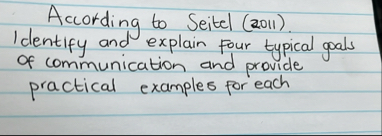 According to Seitel (2011).
Identify and explain four typical goals
of communication and provide
practical examples for each